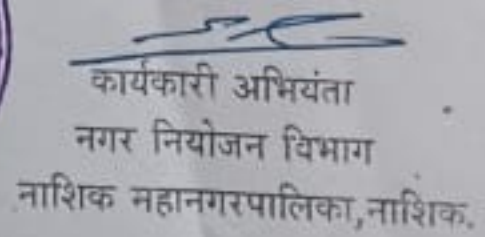 कार्यकारी अभियंता
नगर नियोजन विभाग
नाशिक महानगरपालिका,नाशिक.